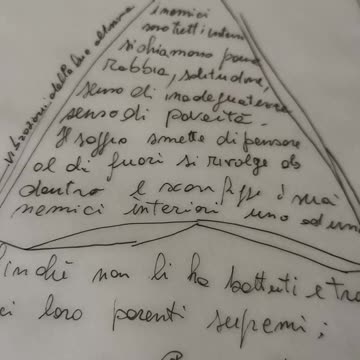 i nemici
sono tutti interni
si chiamano paura
rabbia, solitudine,
senso di inadeguatezza
senso di povertà.
Il saggio smette di pensare
al di fuori si rivolge al
dentro e sconfigge i suoi
nemici interiori uno ad uno
finchè non li ha battuti e tra
ci loro parenti supremi;
vibrazioni della